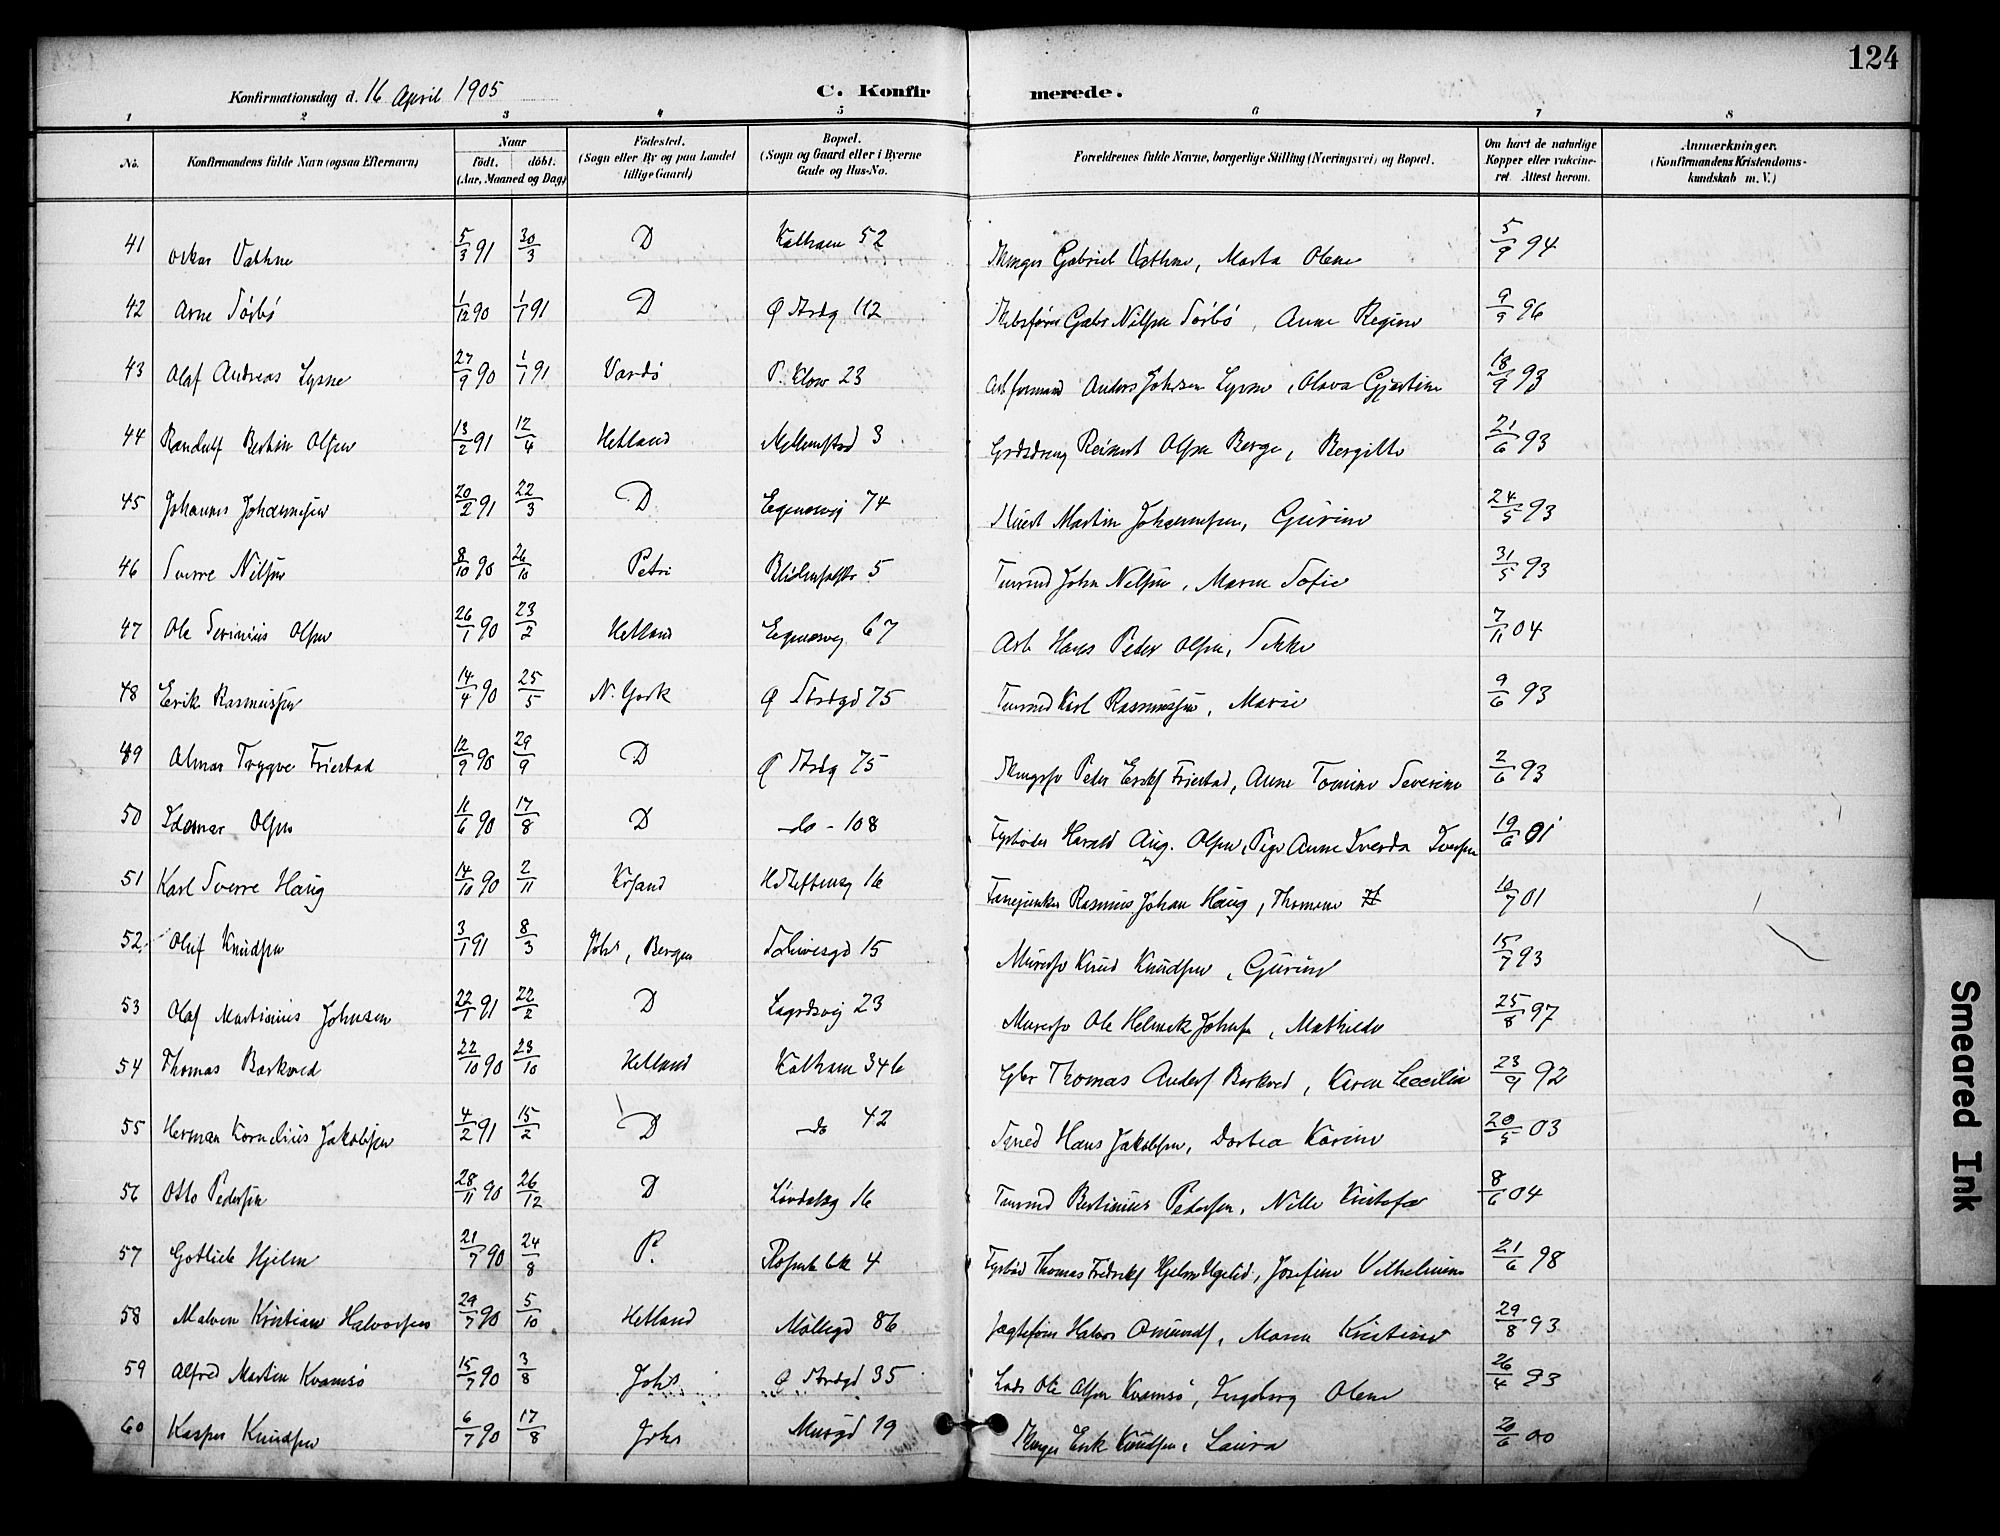 124
Konfirmationsdag d. 16 April 1905 C. Konfirmerede.
1 2 3 4 5 6 7 8
No. Konfirmandens fulde Navn (ogsaa Efternavn) Naar født. døbt. (Aar, Maaned og Dag) Fødested. (Sogn eller By og paa Landet tillige Gaard) Bopæl. (Sogn og Gaard eller i Byerne Gade og Hus-No. Forældrenes fulde Navne, borgerlige Stilling (Næringsvei) og Bopæl. Om havt de naturlige Kopper eller vakcineret. Attest herom. Anmærkninger. (Konfirmandens Kristendomskundskab m. V.)
41 Oskar Vathne 5/3 91 30/3 D Kalham 52 Gabriel Vathne, Marta Olene 5/9 94
42 Arne Sørbø 1/12 90 1/1 91 D Ø Strdg 112 Gabr Nilsen Sørbø, Anne Regine 9/9 96
43 Olaf Andreas Lysne 27/9 90 1/1 91 Vardø P. Klow 23 Arb formand Anders Johnsen Lysne, Olava Gjertine 18/9 93
44 Randulf Bertin Olsen 13/2 91 12/4 Hetland 3 Reinert Olsen Berge, Bergitte 21/6 93
45 Johannes Johannesen 20/2 91 22/3 D Egenesvej 74 Martin Johannesen, Gurine 24/5 93
46 Sverre Nilsen 8/10 90 26/10 Petri 5 Tmrmd John Nilsen, Maren Sofie 31/5 93
47 Ole Severinius Olsen 26/1 90 23/2 Hetland Egenesvej 67 Arb Hans Peder Olsen, Sikke 7/11 04
48 Erik Rasmussen 14/4 90 25/5 N. York Ø Strdgd 75 Tmrmd Karl Rasmussen, Marie 9/6 93
49 Almar Trygve Friestad 12/9 90 29/9 D Ø Strdg 75 Peder Eriks Friestad, Anne Tomine Severine 2/6 93
50 Idemar Olsen 11/6 90 17/8 D do - 108 Harald Aug. Olsen, Pige Anne Sverda Iversen 19/6 01
51 Karl Sverre Haug 14/10 90 2/11 Krsand H Steffensg 16 Fanejunker Rasmus Johan Haug, Thomine H 10/7 01
52. Oluf Knudsen 3/1 91 8/3 Johs, Bergen 15 Murersv Knud Knudsen, Gurine 15/7 93
53 Olaf Martinius Johnsen 22/1 91 22/2 D Lagrdsvej 23 Murersv Ole Helmik Johnsen, Mathilde 25/8 97
54 Thomas Barkved 22/10 90 23/10 Hetland Kalham 346 Thomas Anders Barkved, Karen Cecilia 23/9 92
55 Herman Kornelius Jakobsen 4/2 91 15/2 D do 42 Smed Hans Jakobsen, Dortea Karine 20/5 03
56 Otto Pedersen 28/11 90 26/12 D Løvdalsg 16 Tmrmd Bertinius Pedersen, Nille Kristofa 8/6 04
57 Gotlieb Hjelm 21/7 90 24/8 P. 4 Thomas Fredriks Hjelm, Josefine Vilhelmine 21/6 98
58 Malvin Kristian Halvorsen 29/7 90 5/10 Hetland Møllegd 86 Jagtefører Halvor Omunds, Maren Kristine 29/8 93
59 Alfred Martin Kvamsø 15/7 90 3/8 Johs Ø Strdgd 35 Lods Ole Olsen Kvamsø, Ingeborg Olene 26/4 93
60 Kasper Knudsen 6/7 90 17/8 Johs Musegd 19 Erik Knudsen, Laura 20/6 00
Smeared Ink